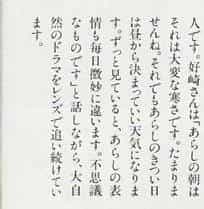 人です。好崎さんは、「あらしの朝は
それは大変な寒さです。たまりま
せんね。それでもあらしのきつい日
は昼から決まっていい天気になりま
す。ずっと見ていると、あらしの表
情も毎日微妙に違います。不思議
なものです」と話しながら、大自
然のドラマをレンズで追い続けてい
ます。